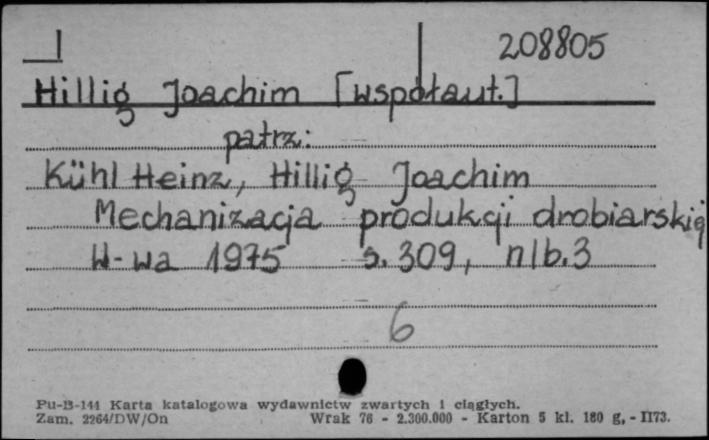 208805
Hillig Joachim [współaut.]
patrz:
Kühl Heinz, Hillig Joachim
Mechanizacja produkcji drobiarskiej
W-wa 1975 s. 309, nlb. 3
6
Pu-B-144 Karta katalogowa wydawnictw zwartych i ciągłych.
Zam. 2264/DW/On Wrak 76 - 2.300.000 - Karton 5 kl. 180 g, - II73.